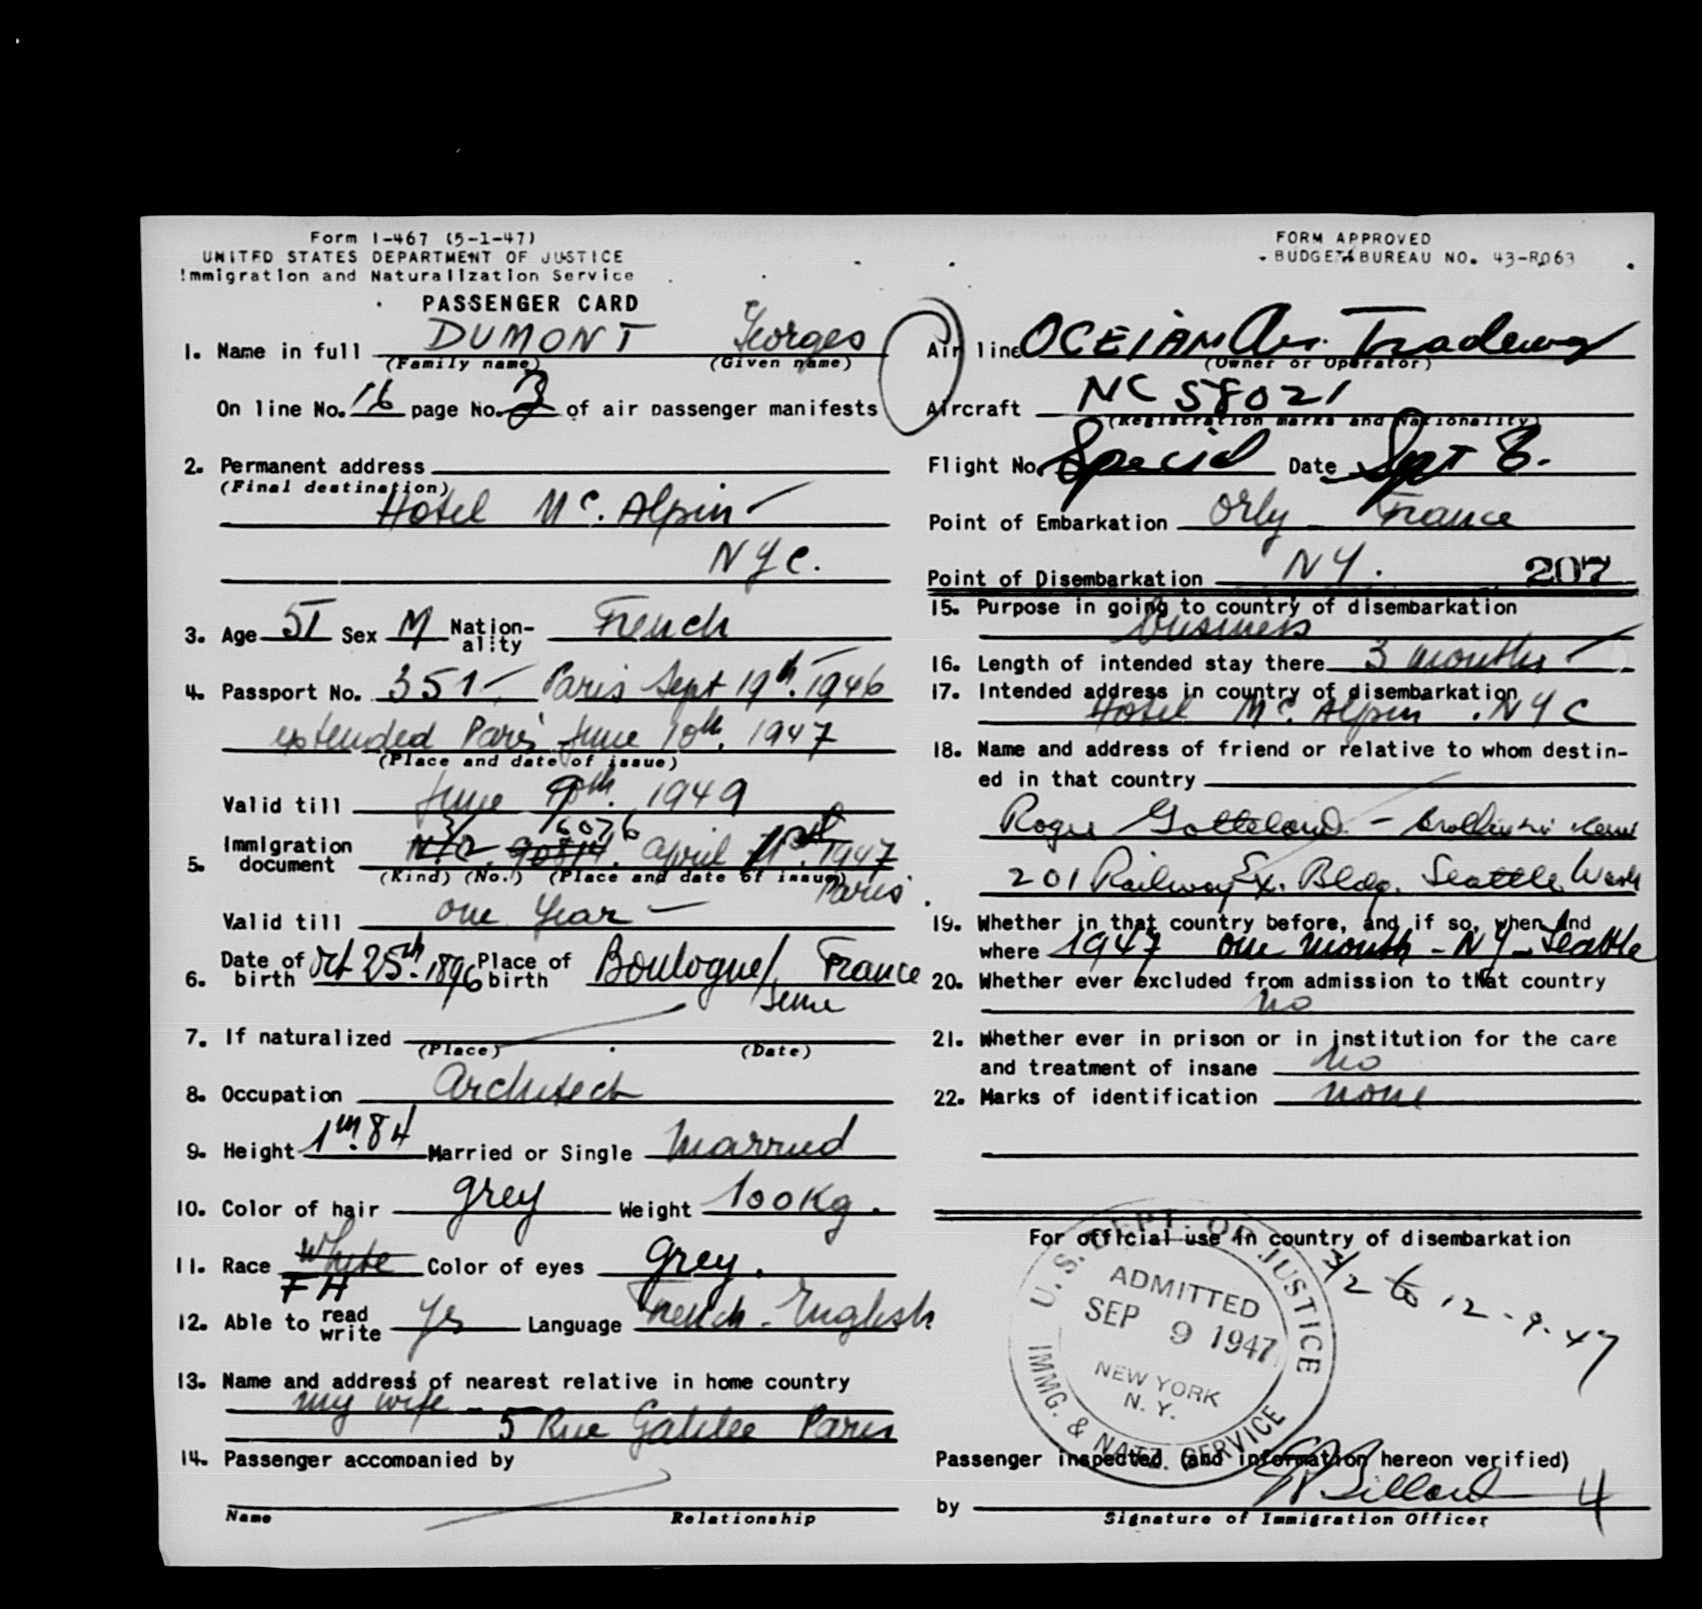 Form I-467 (5-1-47)
UNITED STATES DEPARTMENT OF JUSTICE
Immigration and Naturalization Service
PASSENGER CARD
FORM APPROVED
BUDGET BUREAU NO. 43-R063
1. Name in full DUMONT Georges
(Family name) (Given name)
On line No. 16 page No. 3 of air passenger manifests
2. Permanent address
(Final destination)
Hotel Mc. Alpin
NYC.
3. Age 51 Sex M Nation-ality French
4. Passport No. 351 Paris Sept 19th. 1946
extended Paris June 10th. 1947
(Place and date of issue)
Valid till June 1949
5. Immigration document April 1947
(Kind) (No.) (Place and date of issue)
Paris
Valid till one year
6. Date of birth Oct 25th. 1896 Place of birth Boulogne/ France
Seine
7. If naturalized
(Place) (Date)
8. Occupation Architect
9. Height 1m.84 Married or Single Married
10. Color of hair grey Weight 100Kg.
11. Race White Color of eyes grey.
12. Able to read write yes Language French - English
13. Name and address of nearest relative in home country
my wife -
5 Rue Galilee Paris
14. Passenger accompanied by
Name Relationship
Air line OCEIAN Air Tradeway
(Owner or Operator)
Aircraft NC 58021
(Registration marks and Nationality)
Flight No. Special Date Sept 8.
Point of Embarkation Orly - France
Point of Disembarkation NY. 207
15. Purpose in going to country of disembarkation
business
16. Length of intended stay there 3 months
17. Intended address in country of disembarkation
Hotel Mc. Alpin . NYC
18. Name and address of friend or relative to whom destin-
ed in that country
Roger Gotteland -
201 Railway Ex. Bldg. Seattle Wash
19. Whether in that country before, and if so, when and
where 1947 one month - NY - Seattle
20. Whether ever excluded from admission to that country
no
21. Whether ever in prison or in institution for the care
and treatment of insane no
22. Marks of identification none
For official use in country of disembarkation
U.S. DEPT. OF JUSTICE
ADMITTED
SEP 9 1947
NEW YORK
N. Y.
IMMG. & NATZ. SERVICE
3/2 to 12-9-47
Passenger inspected (and information hereon verified)
by 4
Signature of Immigration Officer